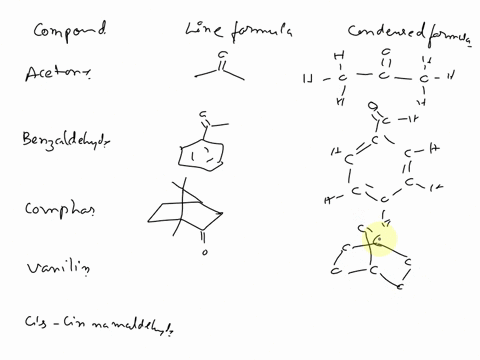 Compound Line formula Condensed formula
Acetone
O
O
H H
H C C C H
H H
Benzaldehyde
O
O
C H
H C C H
H C C H
C
H
Comphar
O
C C
C C
C C
C
Vanilin
Cis-Cinnamaldehyde